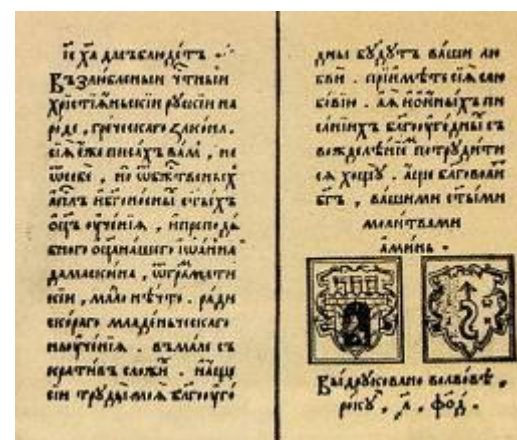 і҃с х҃а да съблюдетъ
Възлюбленыи ч҃тныи
хр҃стїѧ́ньскїи рꙋ́сскїи на
роде , греческаго закона .
сїѧ̀ е́же писахъ ва́м , не
ѿсебе , но ѿбж҃твеныхъ
ап҃лъ и б҃гоносны с҃тыхъ
ѻ҃цъ оу҆че́нїѧ , и преподо́
бнаго ѻ҃ца нашего іѡа́нна
дамаски́на , ѿгра́мати
кїи , ма́ло нѣ́что . ради
ско́раго младе́ньческаго
наоу҆че́нїѧ . въма́ле съ
кратив сложи́ . и а́ще
сїи трꙋды̀ моѧ̀ бл҃гооуго
дны бꙋ́дꙋтъ ва́шеи лю
бви . прїимѣ́те сїѧ̀ с лю
бо́вїю . а ѧ҆̀ и о҆ и́ныхъ пи
са́нїихъ бл҃гооуго́дныхъ съ
вожделѣ́нїемъ потрꙋди́ти
сѧ хощꙋ̀ . а́ще бл҃говоли́т
б҃гъ , ва́шими с҃ты́ми
моли́твами
ами́нь .
Вы́дрꙋковано во льво́вѣ ,
ро́кꙋ , ҂а҃фо҃д .